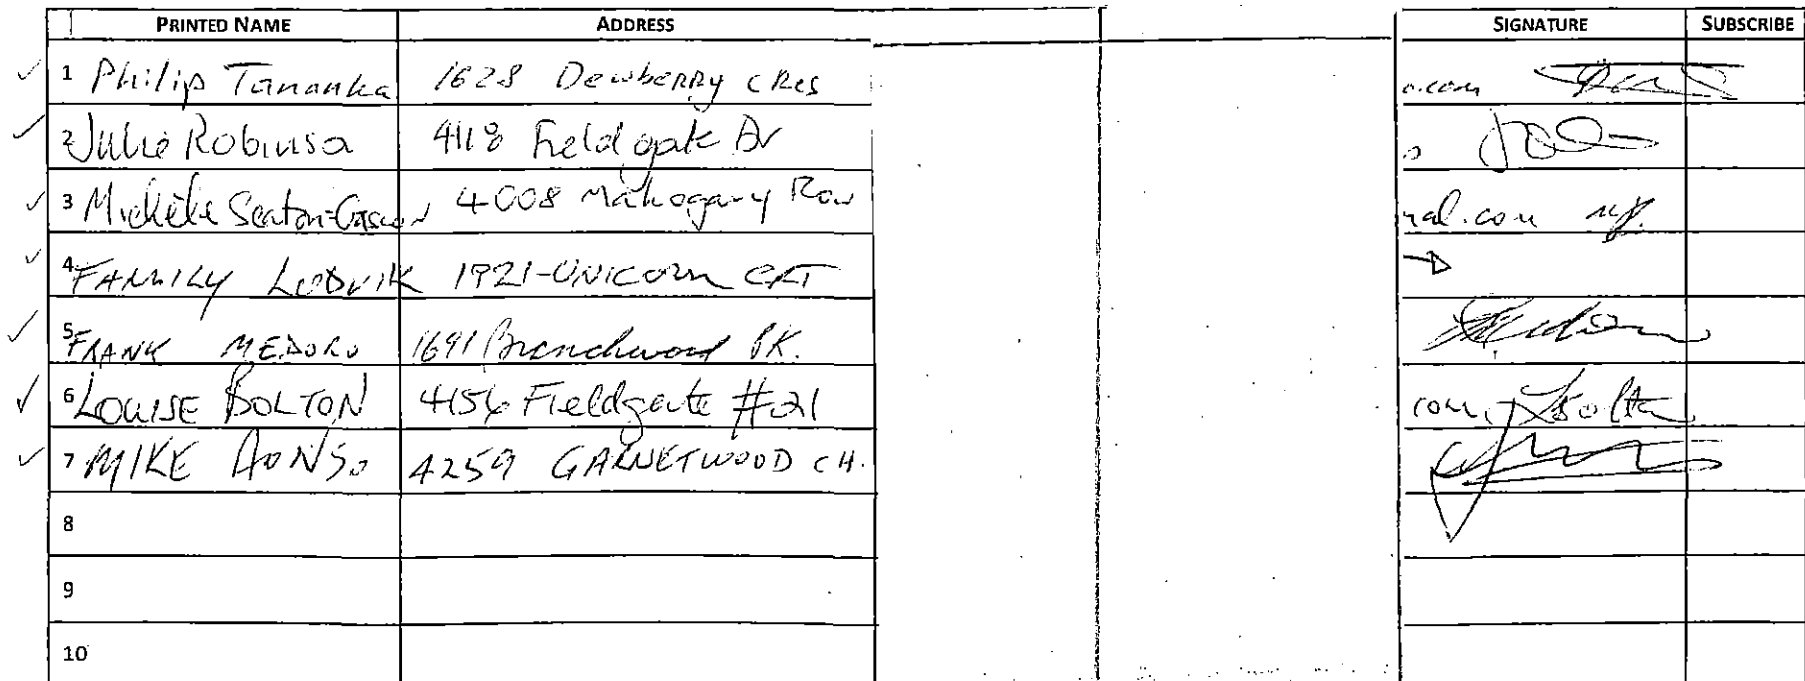 PRINTED NAME ADDRESS SIGNATURE SUBSCRIBE
1 Philip Tananka 1628 Dewberry CRes o.com
2 Julie Robinso 4118 Fieldgate Dr
3 Michèle Seaton- 4008 Mahogany Row .com
4 FAMILY LUDVIK 1921-UNICORN CRT
5 FRANK MEDORO 1691 Branchwood PK.
6 LOUISE BOLTON 4156 Fieldgate #21 com
7 MIKE 4259 GARNETWOOD CH.
8
9
10